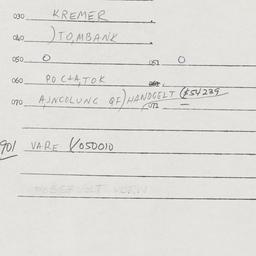 030 KREMER
040 )TOMBANK
050 O 051 O
060 POC+A,TOK
070 AJNCOLUNC QF)HANDGELT (854239
072 —
901 VARE (/050010